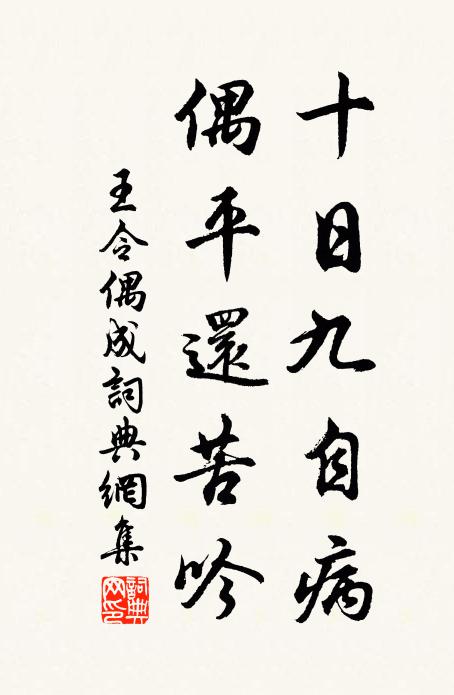 十日九自病
偶平還苦吟
王令偶成詞典網集
詞典網印